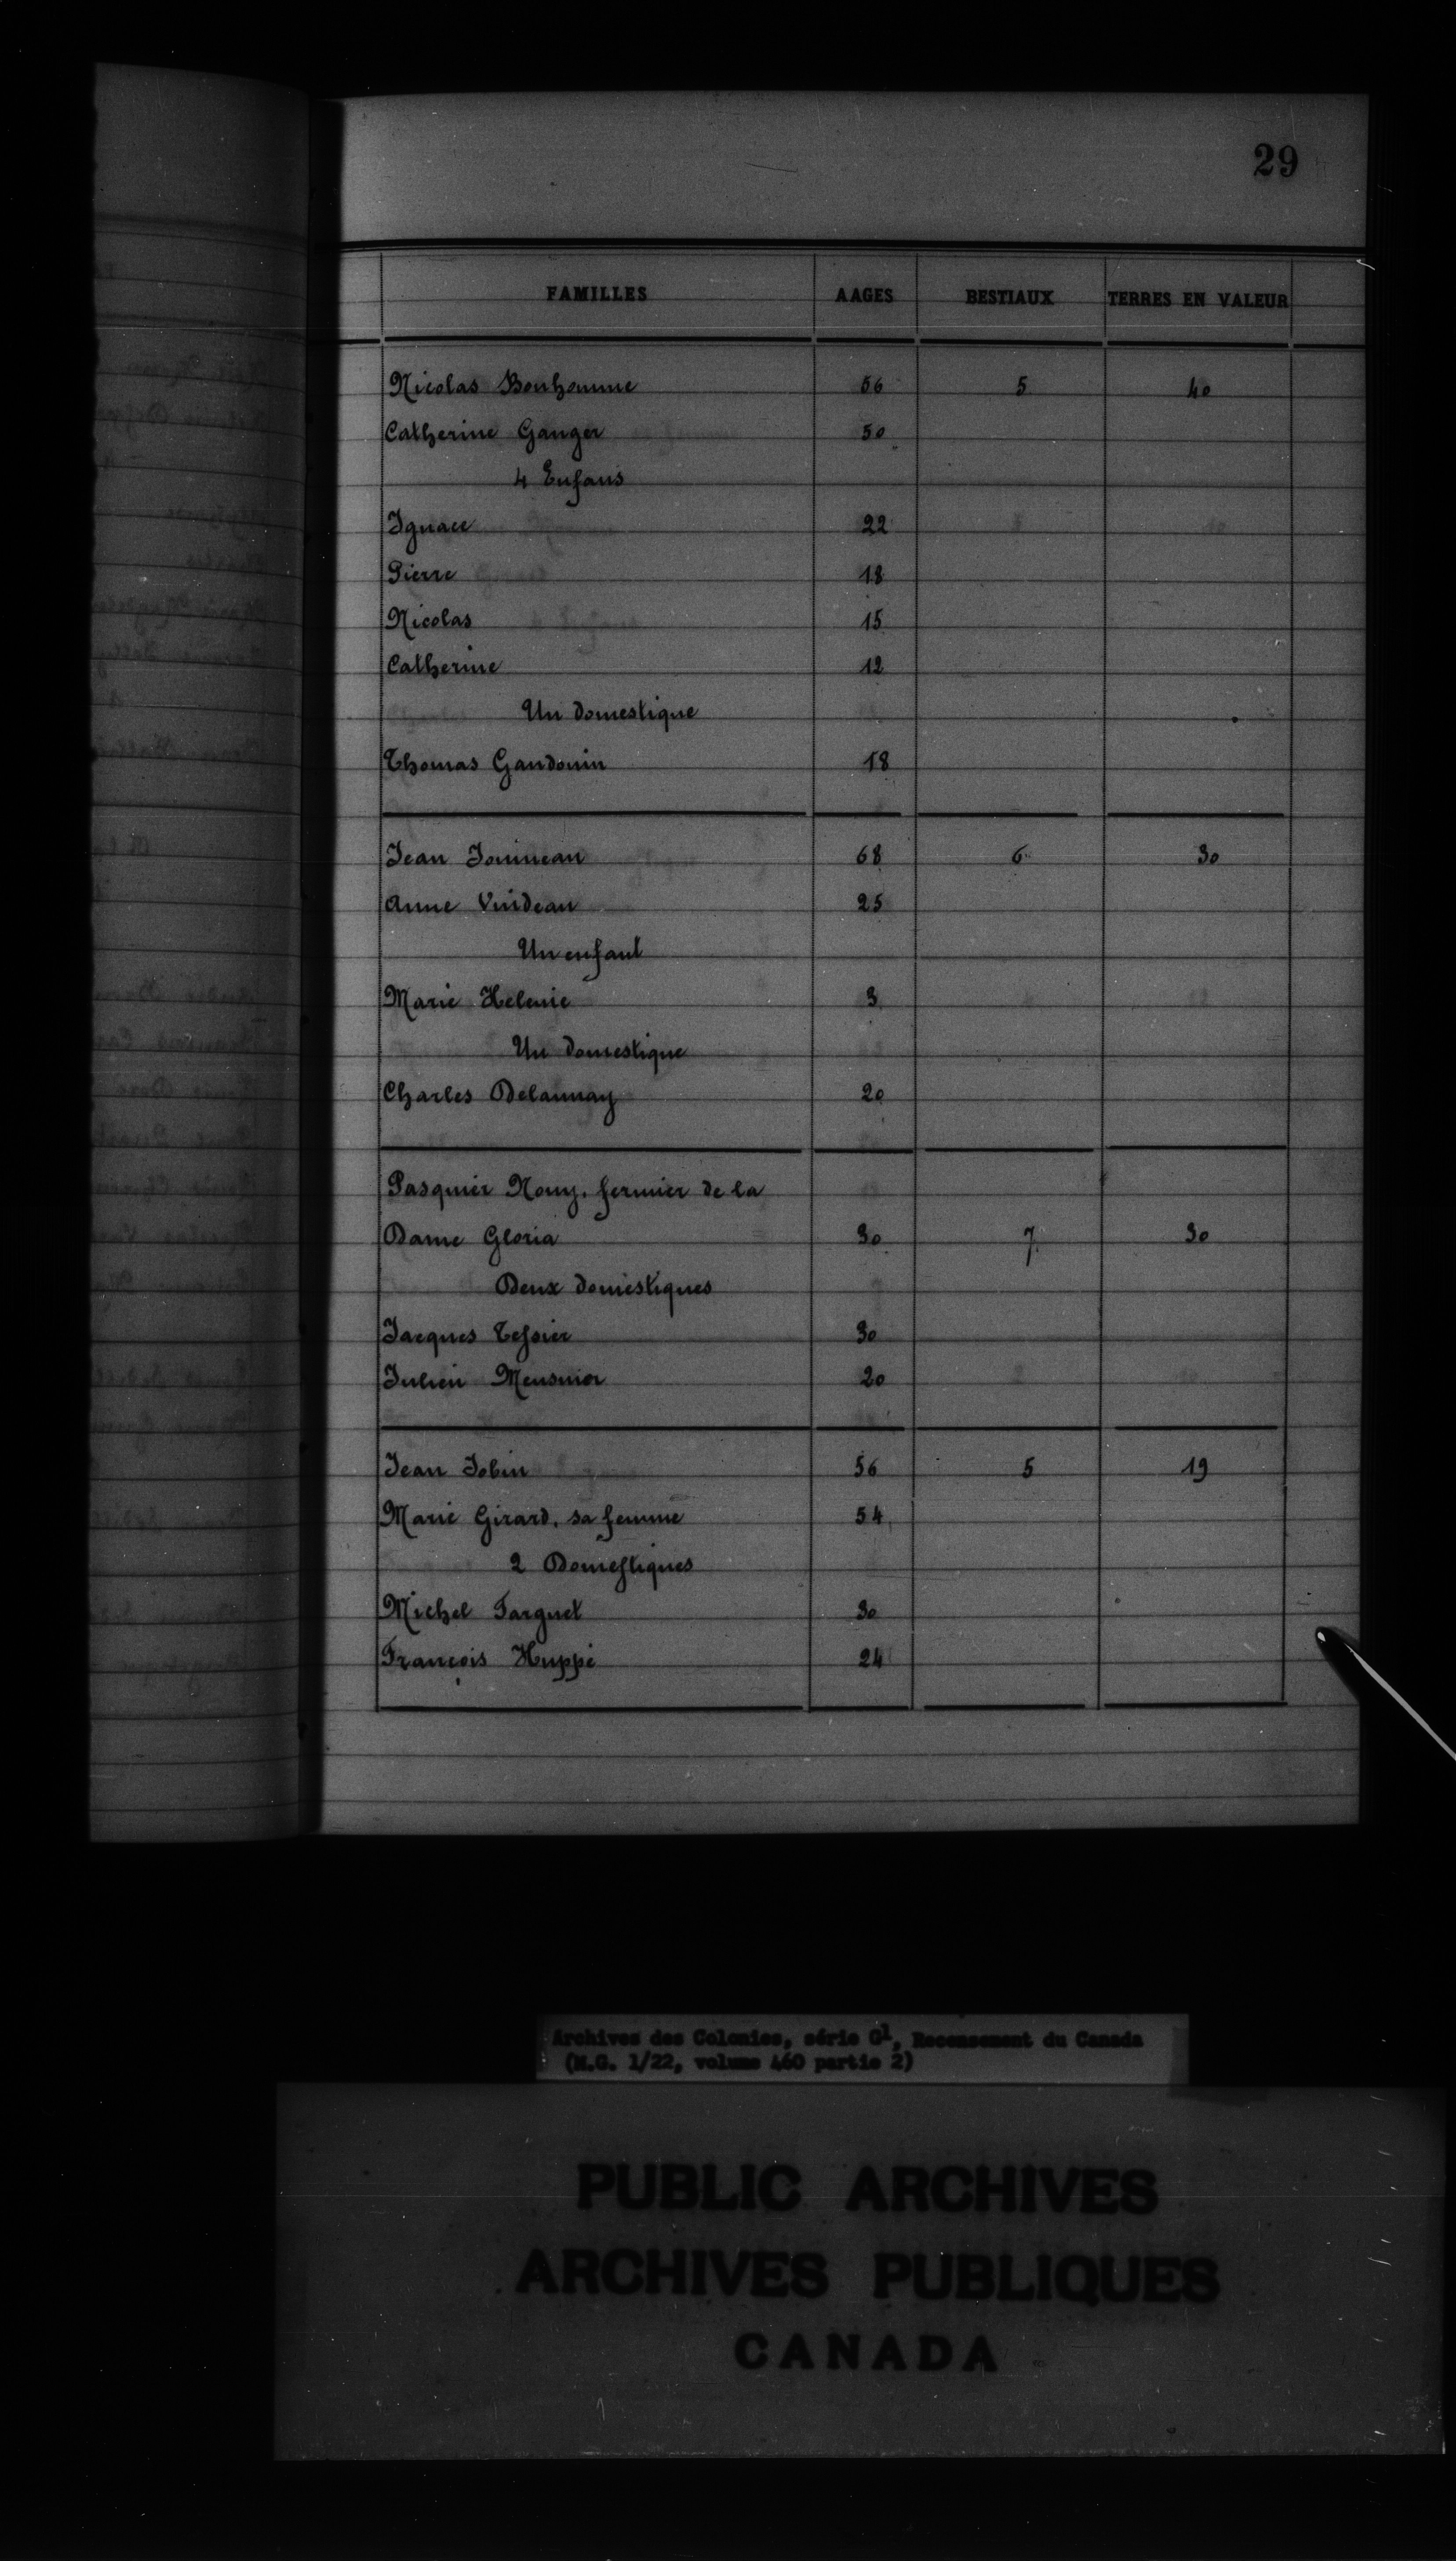 29
FAMILLES AAGES BESTIAUX TERRES EN VALEUR
Nicolas Bonhomme 56 5 40
Catherine Ganger 50
4 Enfans
Ignace 22
Pierre 18
Nicolas 15
Catherine 12
Un domestique
Thomas Gandouin 18
Jean Jouineau 68 6 30
Anne Vuideau 25
Un enfant
Marie Helenie 3
Un domestique
Charles Delaunay 20
Pasquier Nony, fermier de la
Dame Gloria 30 7 30
Deux domestiques
Jacques Tessier 30
Julien Meusnier 20
Jean Jobin 56 5 19
Marie Girard, sa femme 54
2 Domestiques
Michel Farguet 30
François Huppé 24
Archives des Colonies, série G1, Recensement du Canada
(M.G. 1/22, volume 460 partie 2)
PUBLIC ARCHIVES
ARCHIVES PUBLIQUES
CANADA